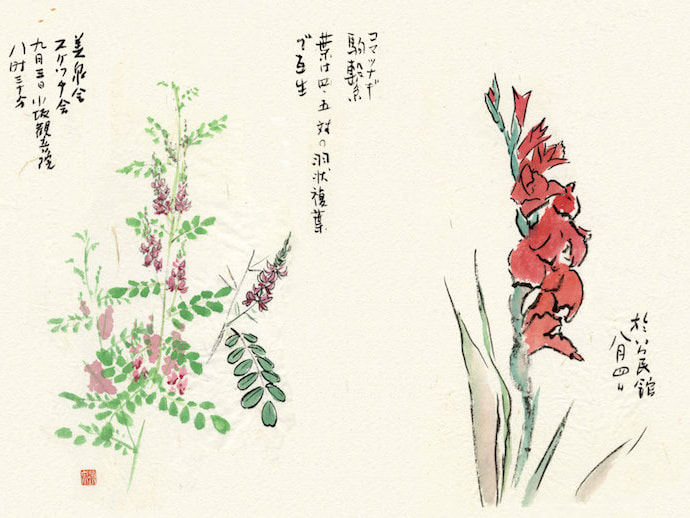 コマツナギ
駒繋
葉は四、五対の羽状複葉
で互生
美泉会
スケッチ会
九月三日小坂観音院
八時三十分
於公民館
八月四日